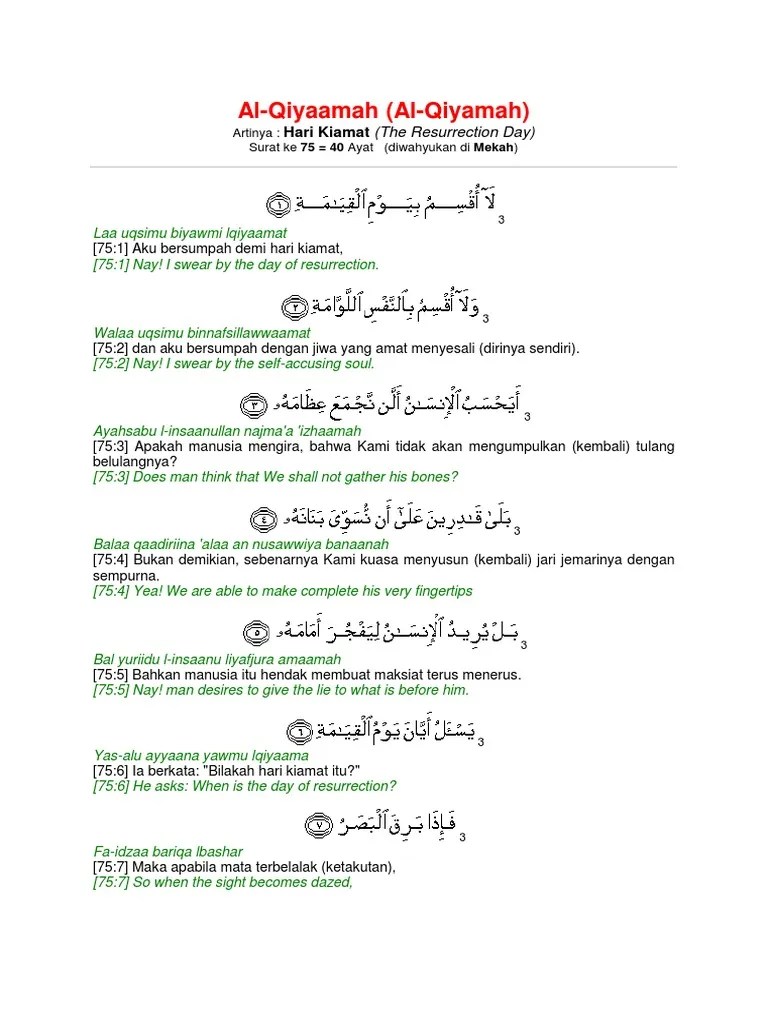 Al-Qiyaamah (Al-Qiyamah)
Artinya : Hari Kiamat (The Resurrection Day)
Surat ke 75 = 40 Ayat (diwahyukan di Mekah)
لَآ أُقْسِمُ بِيَوْمِ ٱلْقِيَـٰمَةِ ﴿١﴾ 3
Laa uqsimu biyawmi lqiyaamat
[75:1] Aku bersumpah demi hari kiamat,
[75:1] Nay! I swear by the day of resurrection.
وَلَآ أُقْسِمُ بِٱلنَّفْسِ ٱللَّوَّامَةِ ﴿٢﴾ 3
Walaa uqsimu binnafsillawwaamat
[75:2] dan aku bersumpah dengan jiwa yang amat menyesali (dirinya sendiri).
[75:2] Nay! I swear by the self-accusing soul.
أَيَحْسَبُ ٱلْإِنسَـٰنُ أَلَّن نَّجْمَعَ عِظَامَهُۥ ﴿٣﴾ 3
Ayahsabu l-insaanullan najma'a 'izhaamah
[75:3] Apakah manusia mengira, bahwa Kami tidak akan mengumpulkan (kembali) tulang
belulangnya?
[75:3] Does man think that We shall not gather his bones?
بَلَىٰ قَـٰدِرِينَ عَلَىٰٓ أَن نُّسَوِّىَ بَنَانَهُۥ ﴿٤﴾ 3
Balaa qaadiriina 'alaa an nusawwiya banaanah
[75:4] Bukan demikian, sebenarnya Kami kuasa menyusun (kembali) jari jemarinya dengan
sempurna.
[75:4] Yea! We are able to make complete his very fingertips
بَلْ يُرِيدُ ٱلْإِنسَـٰنُ لِيَفْجُرَ أَمَامَهُۥ ﴿٥﴾ 3
Bal yuriidu l-insaanu liyafjura amaamah
[75:5] Bahkan manusia itu hendak membuat maksiat terus menerus.
[75:5] Nay! man desires to give the lie to what is before him.
يَسْـَٔلُ أَيَّانَ يَوْمُ ٱلْقِيَـٰمَةِ ﴿٦﴾ 3
Yas-alu ayyaana yawmu lqiyaama
[75:6] Ia berkata: "Bilakah hari kiamat itu?"
[75:6] He asks: When is the day of resurrection?
فَإِذَا بَرِقَ ٱلْبَصَرُ ﴿٧﴾ 3
Fa-idzaa bariqa lbashar
[75:7] Maka apabila mata terbelalak (ketakutan),
[75:7] So when the sight becomes dazed,